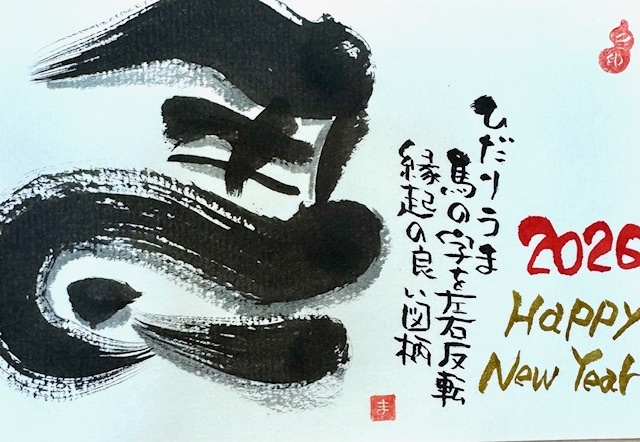 ひだりうま
馬の字を左右反転
縁起の良い図柄
2026
Happy
New Year
ま